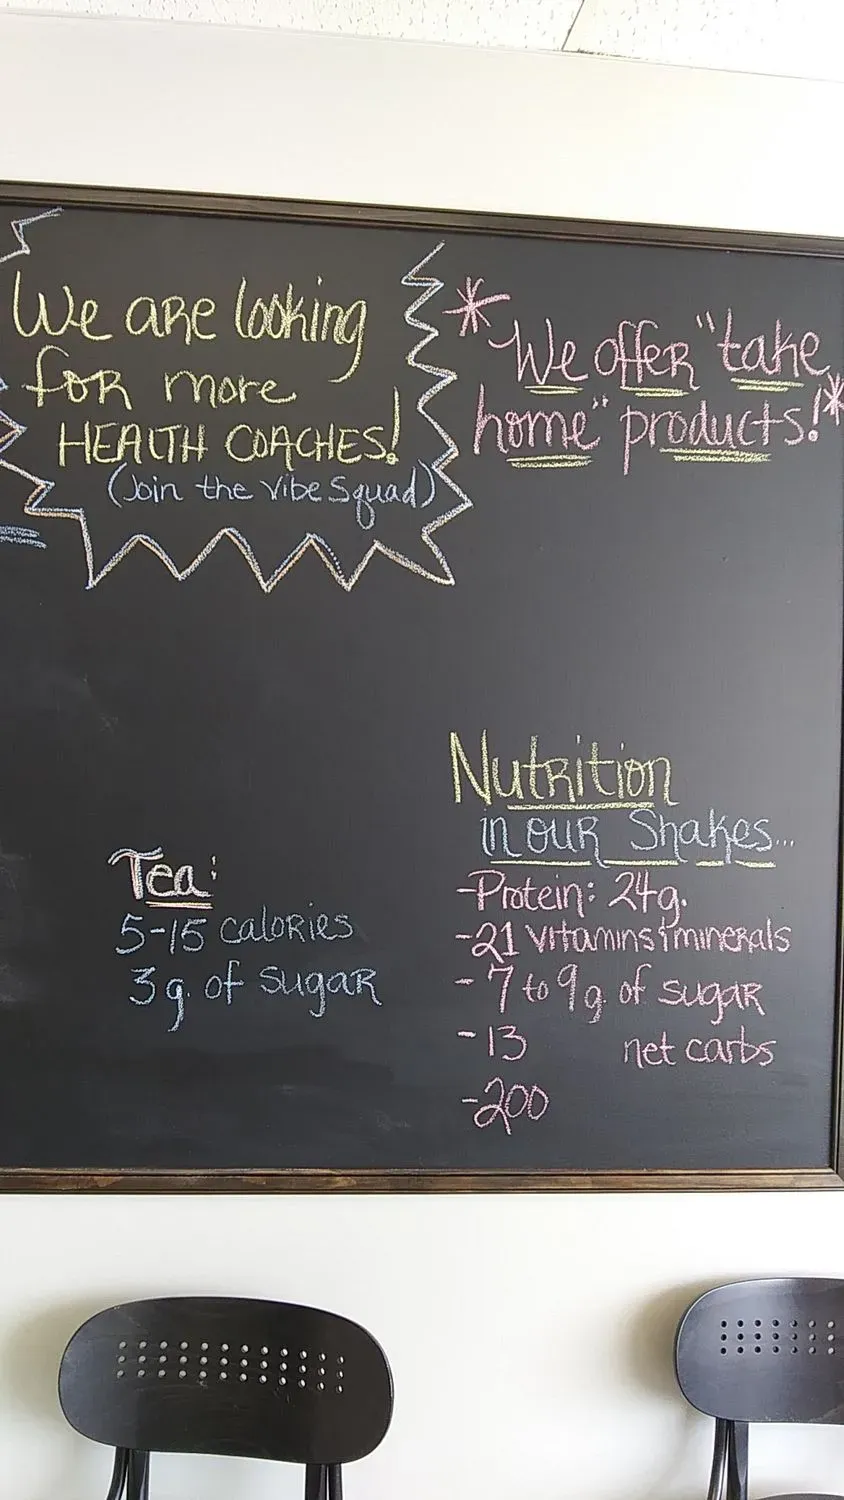 We are looking
for more
HEALTH COACHES!
(Join the Vibe Squad)
*We offer "take
home" products!*
Nutrition
in our Shakes...
-Protein: 24g.
-21 vitamins & minerals
-7 to 9g. of sugar
-13 net carbs
-200
Tea:
5-15 calories
3g. of sugar